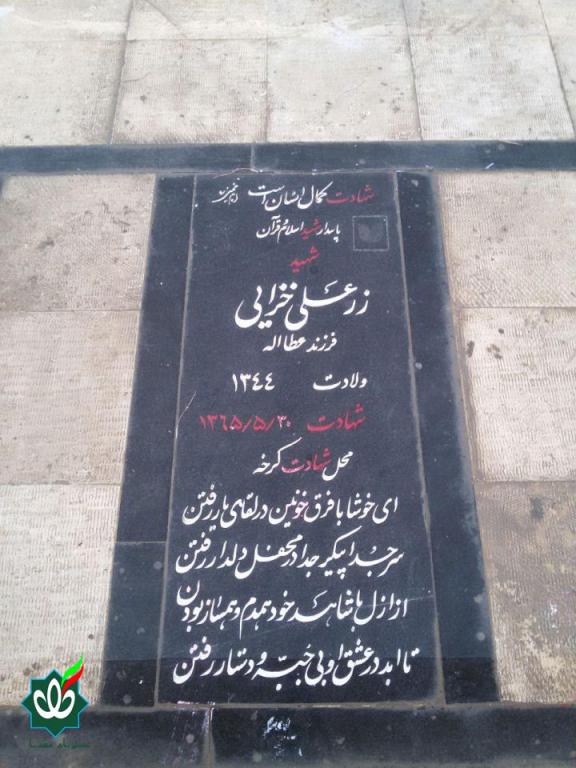 شهادت کمال انسان است امام خمینی
پاسدار شهید اسلام و قرآن
شهید
زرعلی خزایی
فرزند عطااله
ولادت ١٣٤٤
شهادت ١٣٦۵/۵/٣٠
محل شهادت کرخه
ای خوشا با فرق خونین در لقای یار رفتن
سر جدا پیکر جدا در محفل دلدار رفتن
از ازل با شاهد خود همدم و همساز بودن
تا ابد در عشق او بی جبه و دستار رفتن